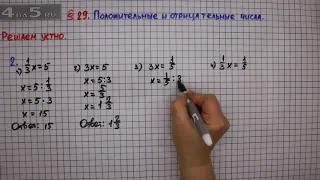 4 на 5.ru
§ 29. Положительные и отрицательные числа.
Решаем устно.
2.
1) 1/3 x = 5
x = 5 : 1/3
x = 5 · 3
x = 15
Ответ: 15
2) 3x = 5
x = 5 : 3
x = 5/3
x = 1 2/3
Ответ: 1 2/3
3) 3x = 1/5
x = 1/5 : 3
4) 1/3 x = 1/5